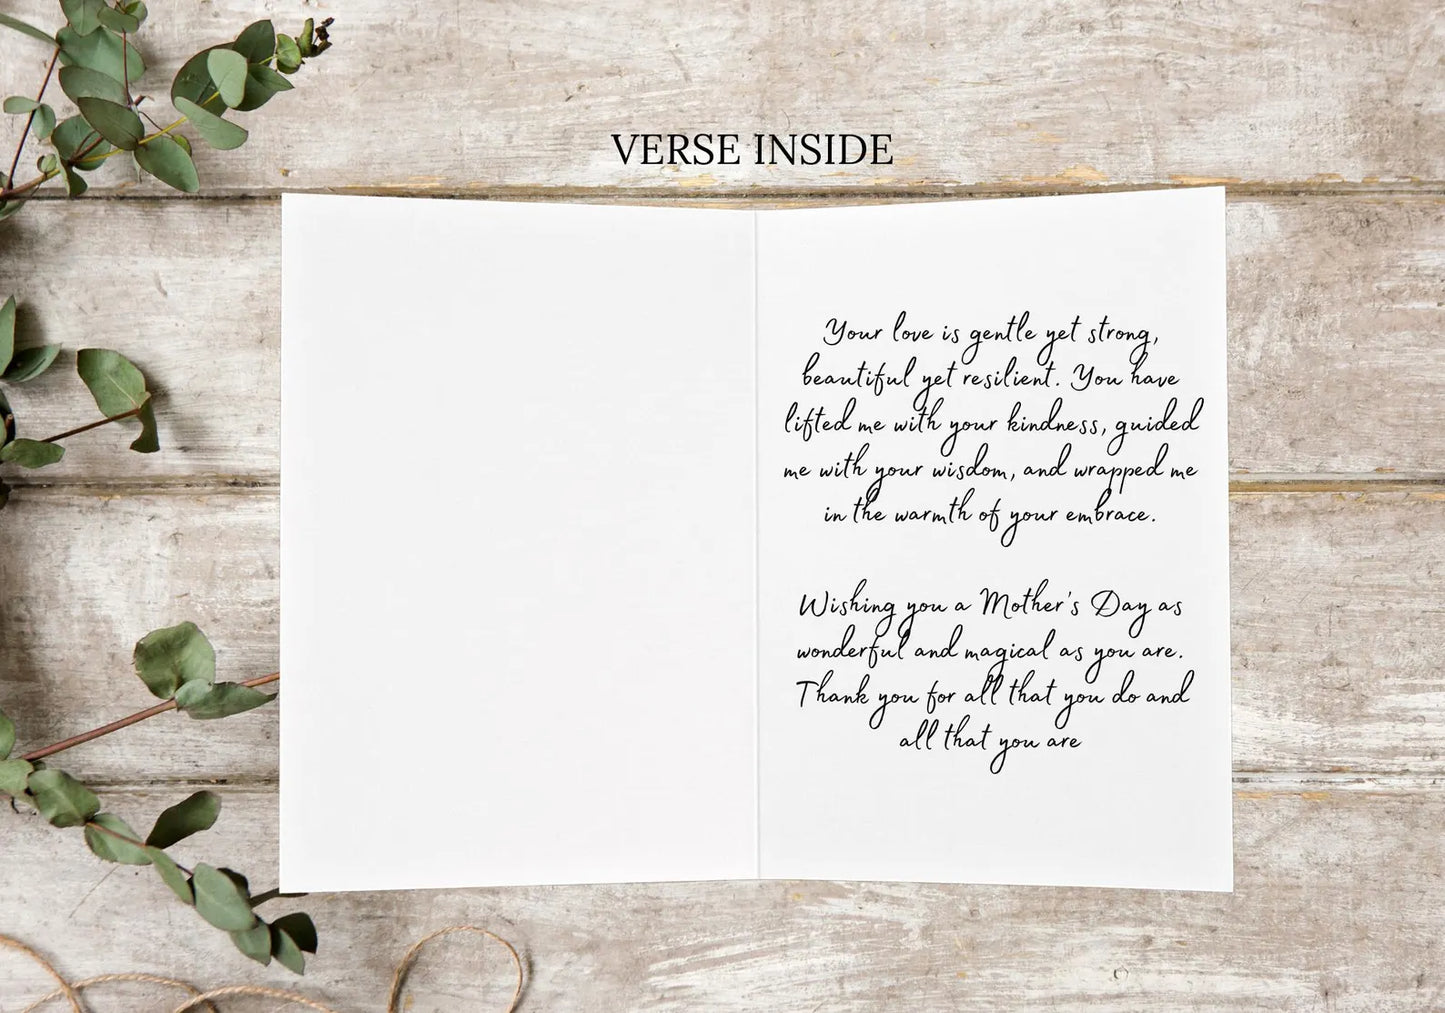 VERSE INSIDE
Your love is gentle yet strong,
beautiful yet resilient. You have
lifted me with your kindness, guided
me with your wisdom, and wrapped me
in the warmth of your embrace.
Wishing you a Mother's Day as
wonderful and magical as you are.
Thank you for all that you do and
all that you are